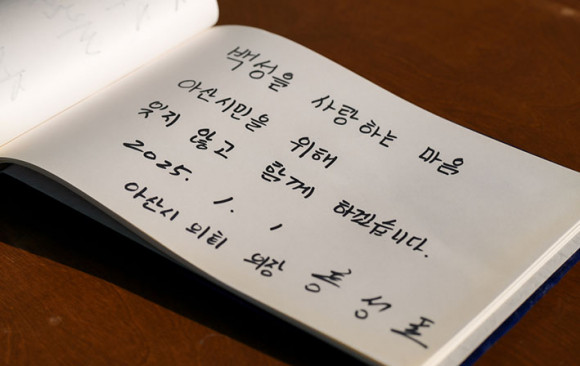 백성을 사랑하는 마음
아산시민을 위해
잊지 않고 함께 하겠습니다.
2025. 1. 1
아산시 의회 의장 홍 성 표